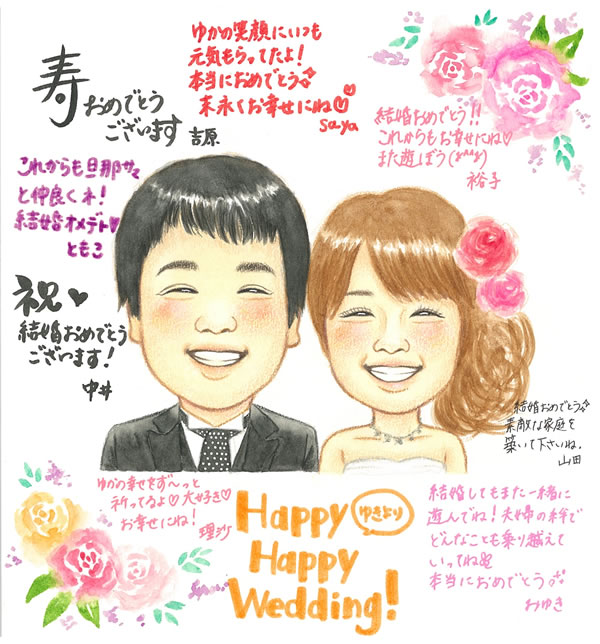 寿
おめでとう
ございます
吉原
ゆかの笑顔にいつも
元気もらってたよ!
本当におめでとう
末永くお幸せにね
saya
結婚おめでとう!!
これからもお幸せにね♡
また遊ぼう(y^^y)
裕子
これからも旦那サマ
と仲良くネ!
結婚オメデト♥
ともこ
祝♥
結婚おめでとう
ございます!
中井
結婚おめでとう
素敵な家庭を
築いて下さいね。
山田
ゆかの幸せをず〜っと
祈ってるよ♡大好き♡
お幸せにね!
理沙
Happy
ゆきより
Happy
Wedding!
結婚してもまた一緒に
遊んでね!夫婦の絆で
どんなことも乗り越えて
いってね
本当におめでとう
みゆき